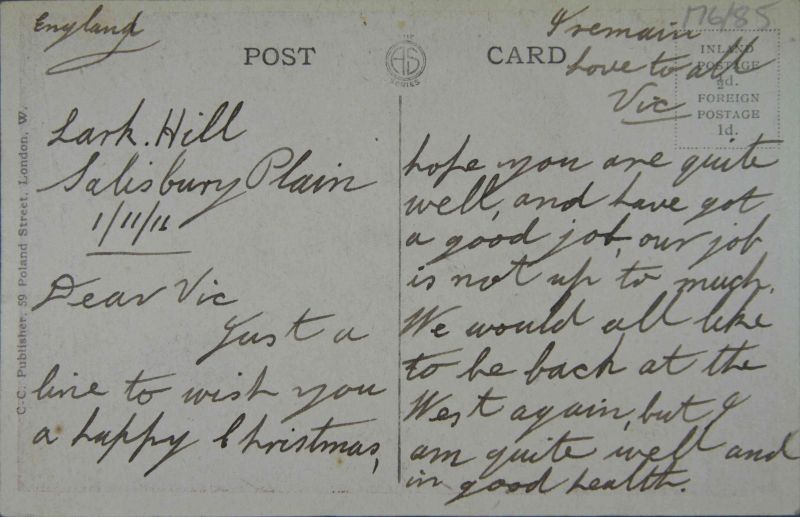 England
POST CARD
THE
AS
SERIES
176/85
INLAND
POSTAGE
½d.
FOREIGN
POSTAGE
1d.
C-C. Publisher, 59 Poland Street, London, W.
Lark. Hill
Salisbury Plain
1/11/16
Dear Vic
Just a
line to wish you
a happy Christmas,
hope you are quite
well, and have got
a good job, our job
is not up to much.
We would all like
to be back at the
West again, but I
am quite well and
in good health.
I remain
Love to all
Vic